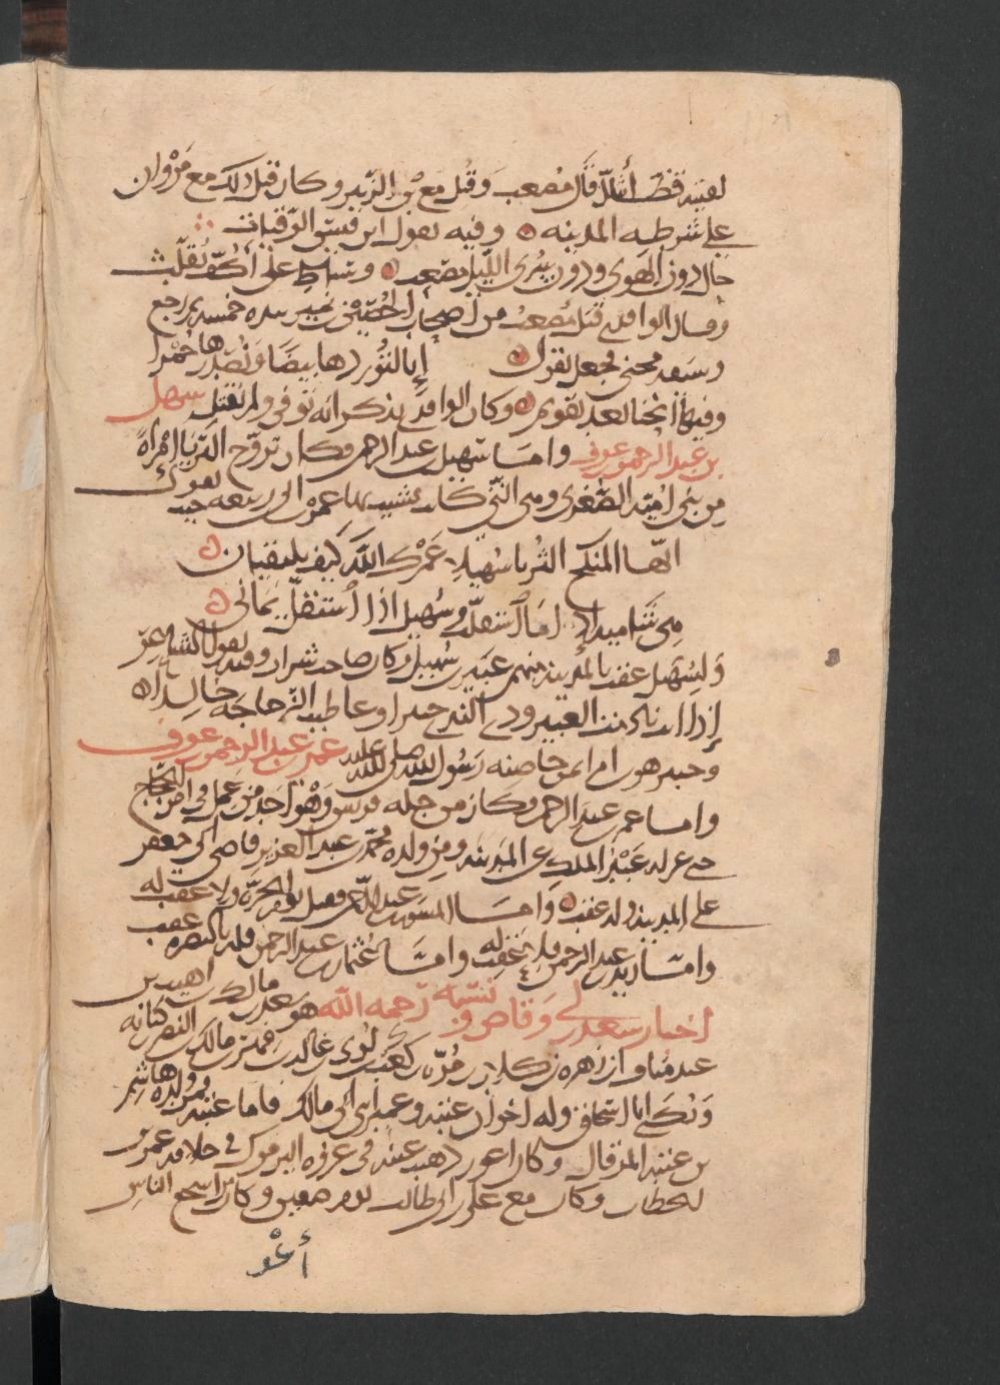 لقيته قط أبدا قال مصعب وقتل مع بن الزبير وكان قبل ذلك مع مروان
على شرطه المدينه وفيه يقول ابن قيس الرقيات
حال دون الهوى ودون سرى الليل مصعب وسياط على أكف تقلب
وقال الواقدي قتل مصعب من أصحاب الحصين بن نمير بيده خمسه ثم رجع
وسيفه محني فجعل يقول إنا لنوردها بيضا ونصدرها حمرا
وفيها انحنا بعد تقويم وكان الواقدي يذكر انه توفي ولم يقتل سهل
بن عبد الرحمن عوف واما سهيل بن عبد الرحمن فكان تزوج الثريا امراة
من بني اميه الصغرى وهي التي كان يشبب بها عمر بن ابي ربيعه حيث يقول
ايها المنكح الثريا سهيلا عمرك الله كيف يلتقيان
هي شاميه اذا ما استقلت وسهيل اذا استقل يماني
ولسهيل عقب بالمدينه منهم عتير بن سهيل وكان صاحب شراب وفيه يقول الشاعر
إذا انت نادمت العتير وذا الندى جبيرا وعاطيت الزجاجه خالدا
وجبير هو بن ام ايمن حاضنه رسول الله صلى الله عليه عمر بن عبد الرحمن عوف
واما عمر بن عبد الرحمن فكان من جله قريش وهو احد من عمل في امر الحجاج
حتى عزله عبد الملك عن المدينه ومن ولده محمد بن عبد العزيز قاضي ابي جعفر
على المدينه وله عقب واما المسور بن عبد الرحمن فقتل يوم الحرة ولا عقب له
واما زيد بن عبد الرحمن فلا عقب له واما عثمان بن عبد الرحمن فله بالبصره عقب
اخبار سعد بن أبي وقاص ونسبه رحمه الله هو سعد بن مالك بن اهيب بن
عبد مناف بن زهره بن كلاب بن مرة بن كعب بن لوي بن غالب بن فهر بن مالك بن النضر بن كنانه
ويكنى ابا اسحاق وله اخوان عتبه وعمير ابني ابي مالك فاما عتبه فمن ولده هاشم
بن عتبه المرقال وكان اعور ذهبت عينه في غزوه اليرموك في خلافه عمر بن
الخطاب وكان مع علي بن ابي طالب يوم صفين وكان من اشجع الناس
أعو